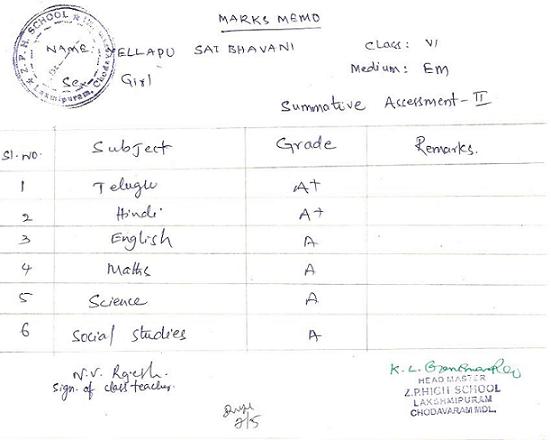 MARKS MEMO
Z.P.H. SCHOOL
Laxmipuram, Chodavaram
NAME: YELLAPU SAI BHAVANI
Class: VI
Sex: Girl
Medium: EM
Summative Assessment - II
Sl. No. Subject Grade Remarks.
1 Telugu A+
2 Hindi A+
3 English A
4 Maths A
5 Science A
6 Social studies A
N.V. Rajesh.
Sign. of class teacher.
HEAD MASTER
Z.P.HIGH SCHOOL
LAKSHMIPURAM
CHODAVARAM MDL.
2/5